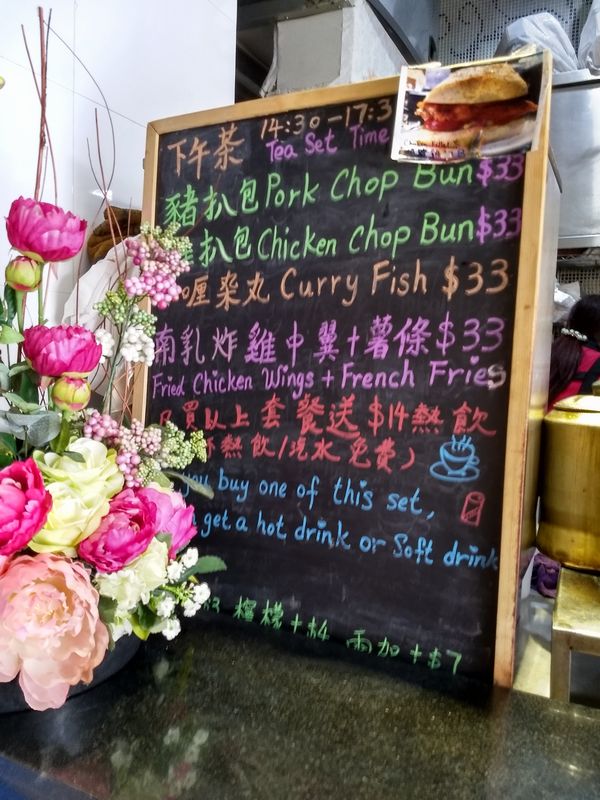 下午茶 14:30-17:3
Tea Set Time
豬扒包 Pork Chop Bun $33
扒包 Chicken Chop Bun $33
喱魚丸 Curry Fish $33
南乳炸雞中翼+薯條 $33
Fried Chicken Wings + French Fries
買以上套餐送$14熱飲
熱飲/汽水免費)
you buy one of this set,
get a hot drink or Soft drink
檸檬+$4 兩加+$7